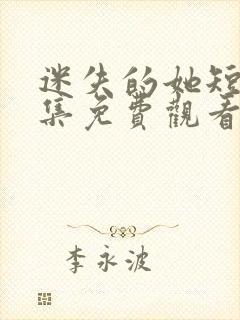 迷失的她短
集免費觀看
李永波